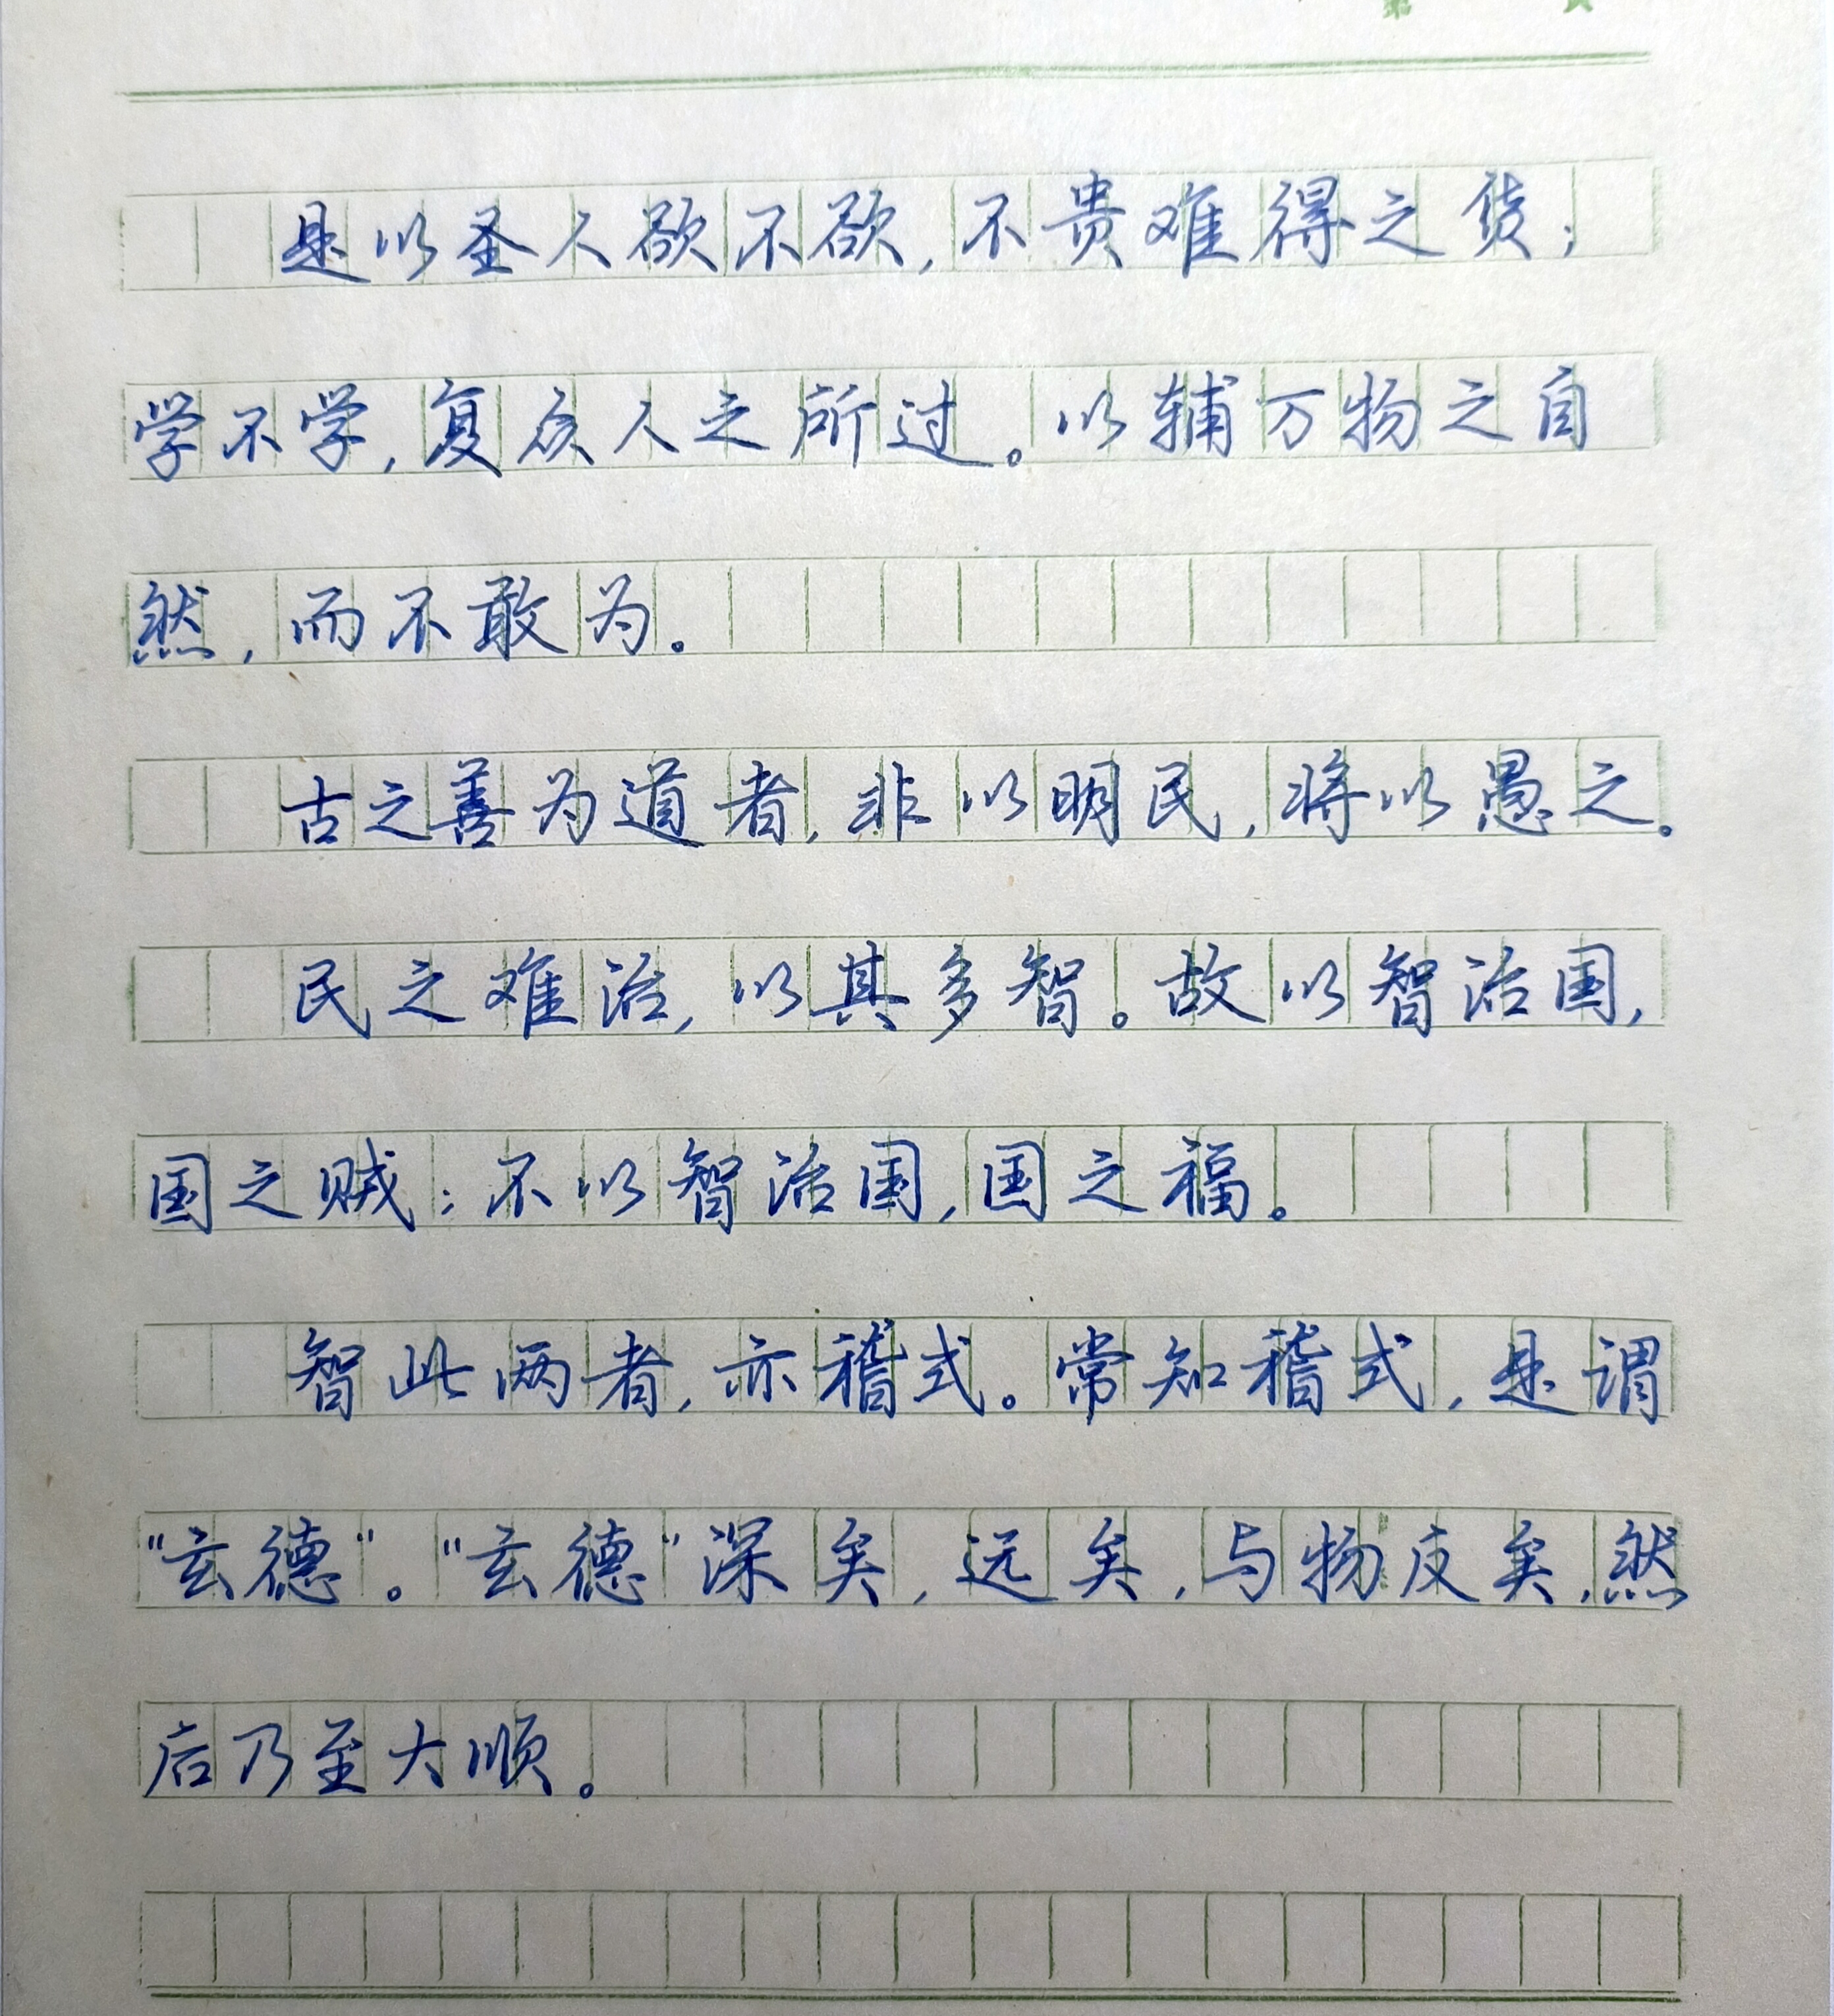 是以圣人欲不欲,不贵难得之货;
学不学,复众人之所过。以辅万物之自
然,而不敢为。
古之善为道者,非以明民,将以愚之。
民之难治,以其多智。故以智治国,
国之贼;不以智治国,国之福。
智此两者,亦稽式。常知稽式,是谓
“玄德”。“玄德”深矣,远矣,与物反矣,然
后乃至大顺。